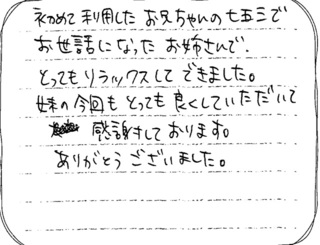 初めて利用したお兄ちゃんの七五三で
お世話になったお姉さんで、
とってもリラックスしてできました。
妹の今回もとっても良くしていただいて
感謝しております。
ありがとうございました。